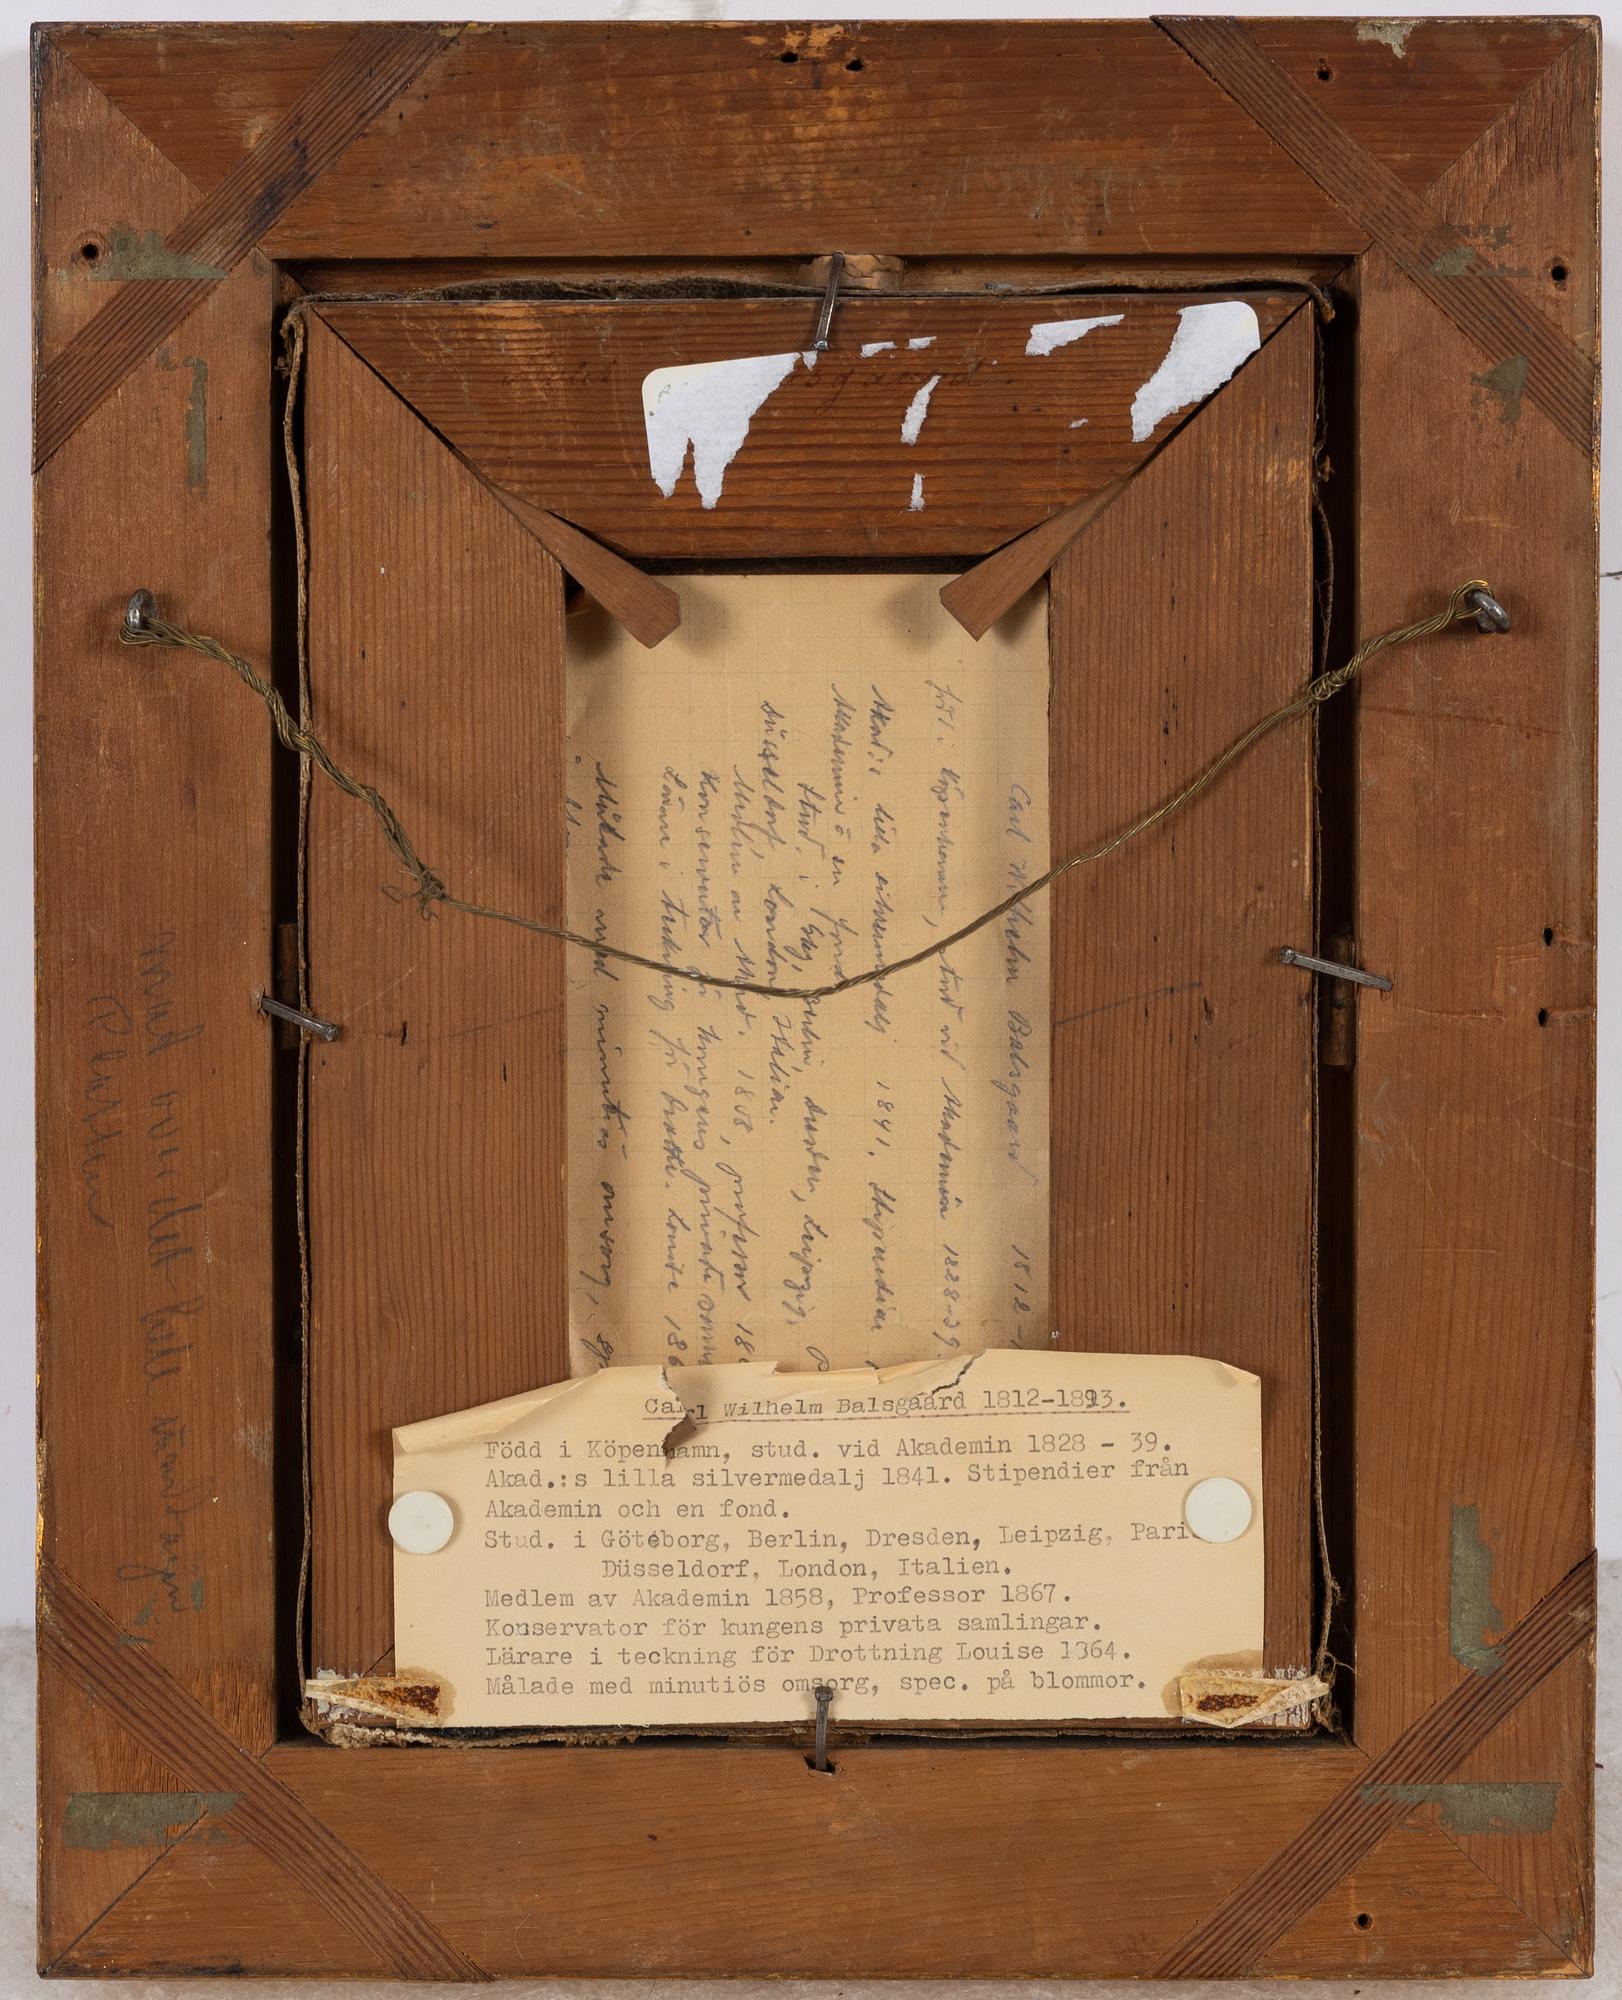 Carl Wilhelm Balsgaard 1812-1893.
Född i Köpenhamn, stud. vid Akademin 1828 - 39.
Akad.:s lilla silvermedalj 1841. Stipendier från
Akademin och en fond.
Stud. i Göteborg, Berlin, Dresden, Leipzig, Pari
Düsseldorf, London, Italien.
Medlem av Akademin 1858, Professor 1867.
Konservator för kungens privata samlingar.
Lärare i teckning för Drottning Louise 1364.
Målade med minutiös omsorg, spec. på blommor.
Carl Wilhelm Balsgaard 1812-
född i Köpenhamn, stud vid Akademin 1828-39.
Akad:s lilla silvermedalj 1841. Stipendier
Akademin o en fond
Stud. i Gbg, Berlin, Dresden, Leipzig, P
Düsseldorf, London, Italien.
Medlem av Akad. 1858, professor 18
Konservator för kungens privata saml
Lärare i teckning för Drottn. Louise 186
Målade med minutiös omsorg,